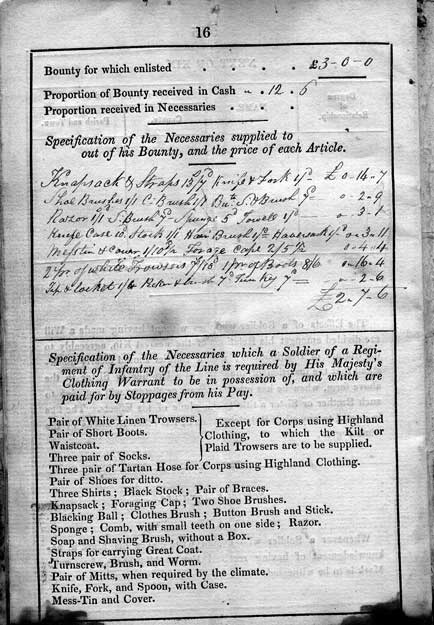 16
Bounty for which enlisted . . . . . £3-0-0
Proportion of Bounty received in Cash " . 12 . 6
Proportion received in Necessaries . . .
Specification of the Necessaries supplied to
out of his Bounty, and the price of each Article.
Knapsack & Straps 15/7 Knife & Fork 1/ £ 0-16-7
Shoe Brushes 1/1 C. Brush 1/1 & Brush 7 0-2-9
Razor 1/0 S. Brush 7 Spunge 5 Towell 1/ 0-3-1
Knife Case 10 Stock 1/1 Hair Brush Haversack 0-3-11
Messtin & Cover 1/10½ Forage Cap 2/5½ 0-4-4
2 Prs of white Trousers 7/10 1 Pr of Boots 8/6 0-16-4
& Locket 1/ & brush 7 Turn Key 7 0-2-6
£2-7-6
Specification of the Necessaries which a Soldier of a Regi-
ment of Infantry of the Line is required by His Majesty's
Clothing Warrant to be in possession of, and which are
paid for by Stoppages from his Pay.
Pair of White Linen Trowsers. } Except for Corps using Highland
Pair of Short Boots. Clothing, to which the Kilt or
Waistcoat. Plaid Trowsers are to be supplied.
Three pair of Socks.
Three pair of Tartan Hose for Corps using Highland Clothing.
Pair of Shoes for ditto.
Three Shirts; Black Stock; Pair of Braces.
Knapsack; Foraging Cap; Two Shoe Brushes.
Blacking Ball; Clothes Brush; Button Brush and Stick.
Sponge; Comb, with small teeth on one side; Razor.
Soap and Shaving Brush, without a Box.
Straps for carrying Great Coat.
Turnscrew, Brush, and Worm.
Pair of Mitts, when required by the climate.
Knife, Fork, and Spoon, with Case.
Mess-Tin and Cover.